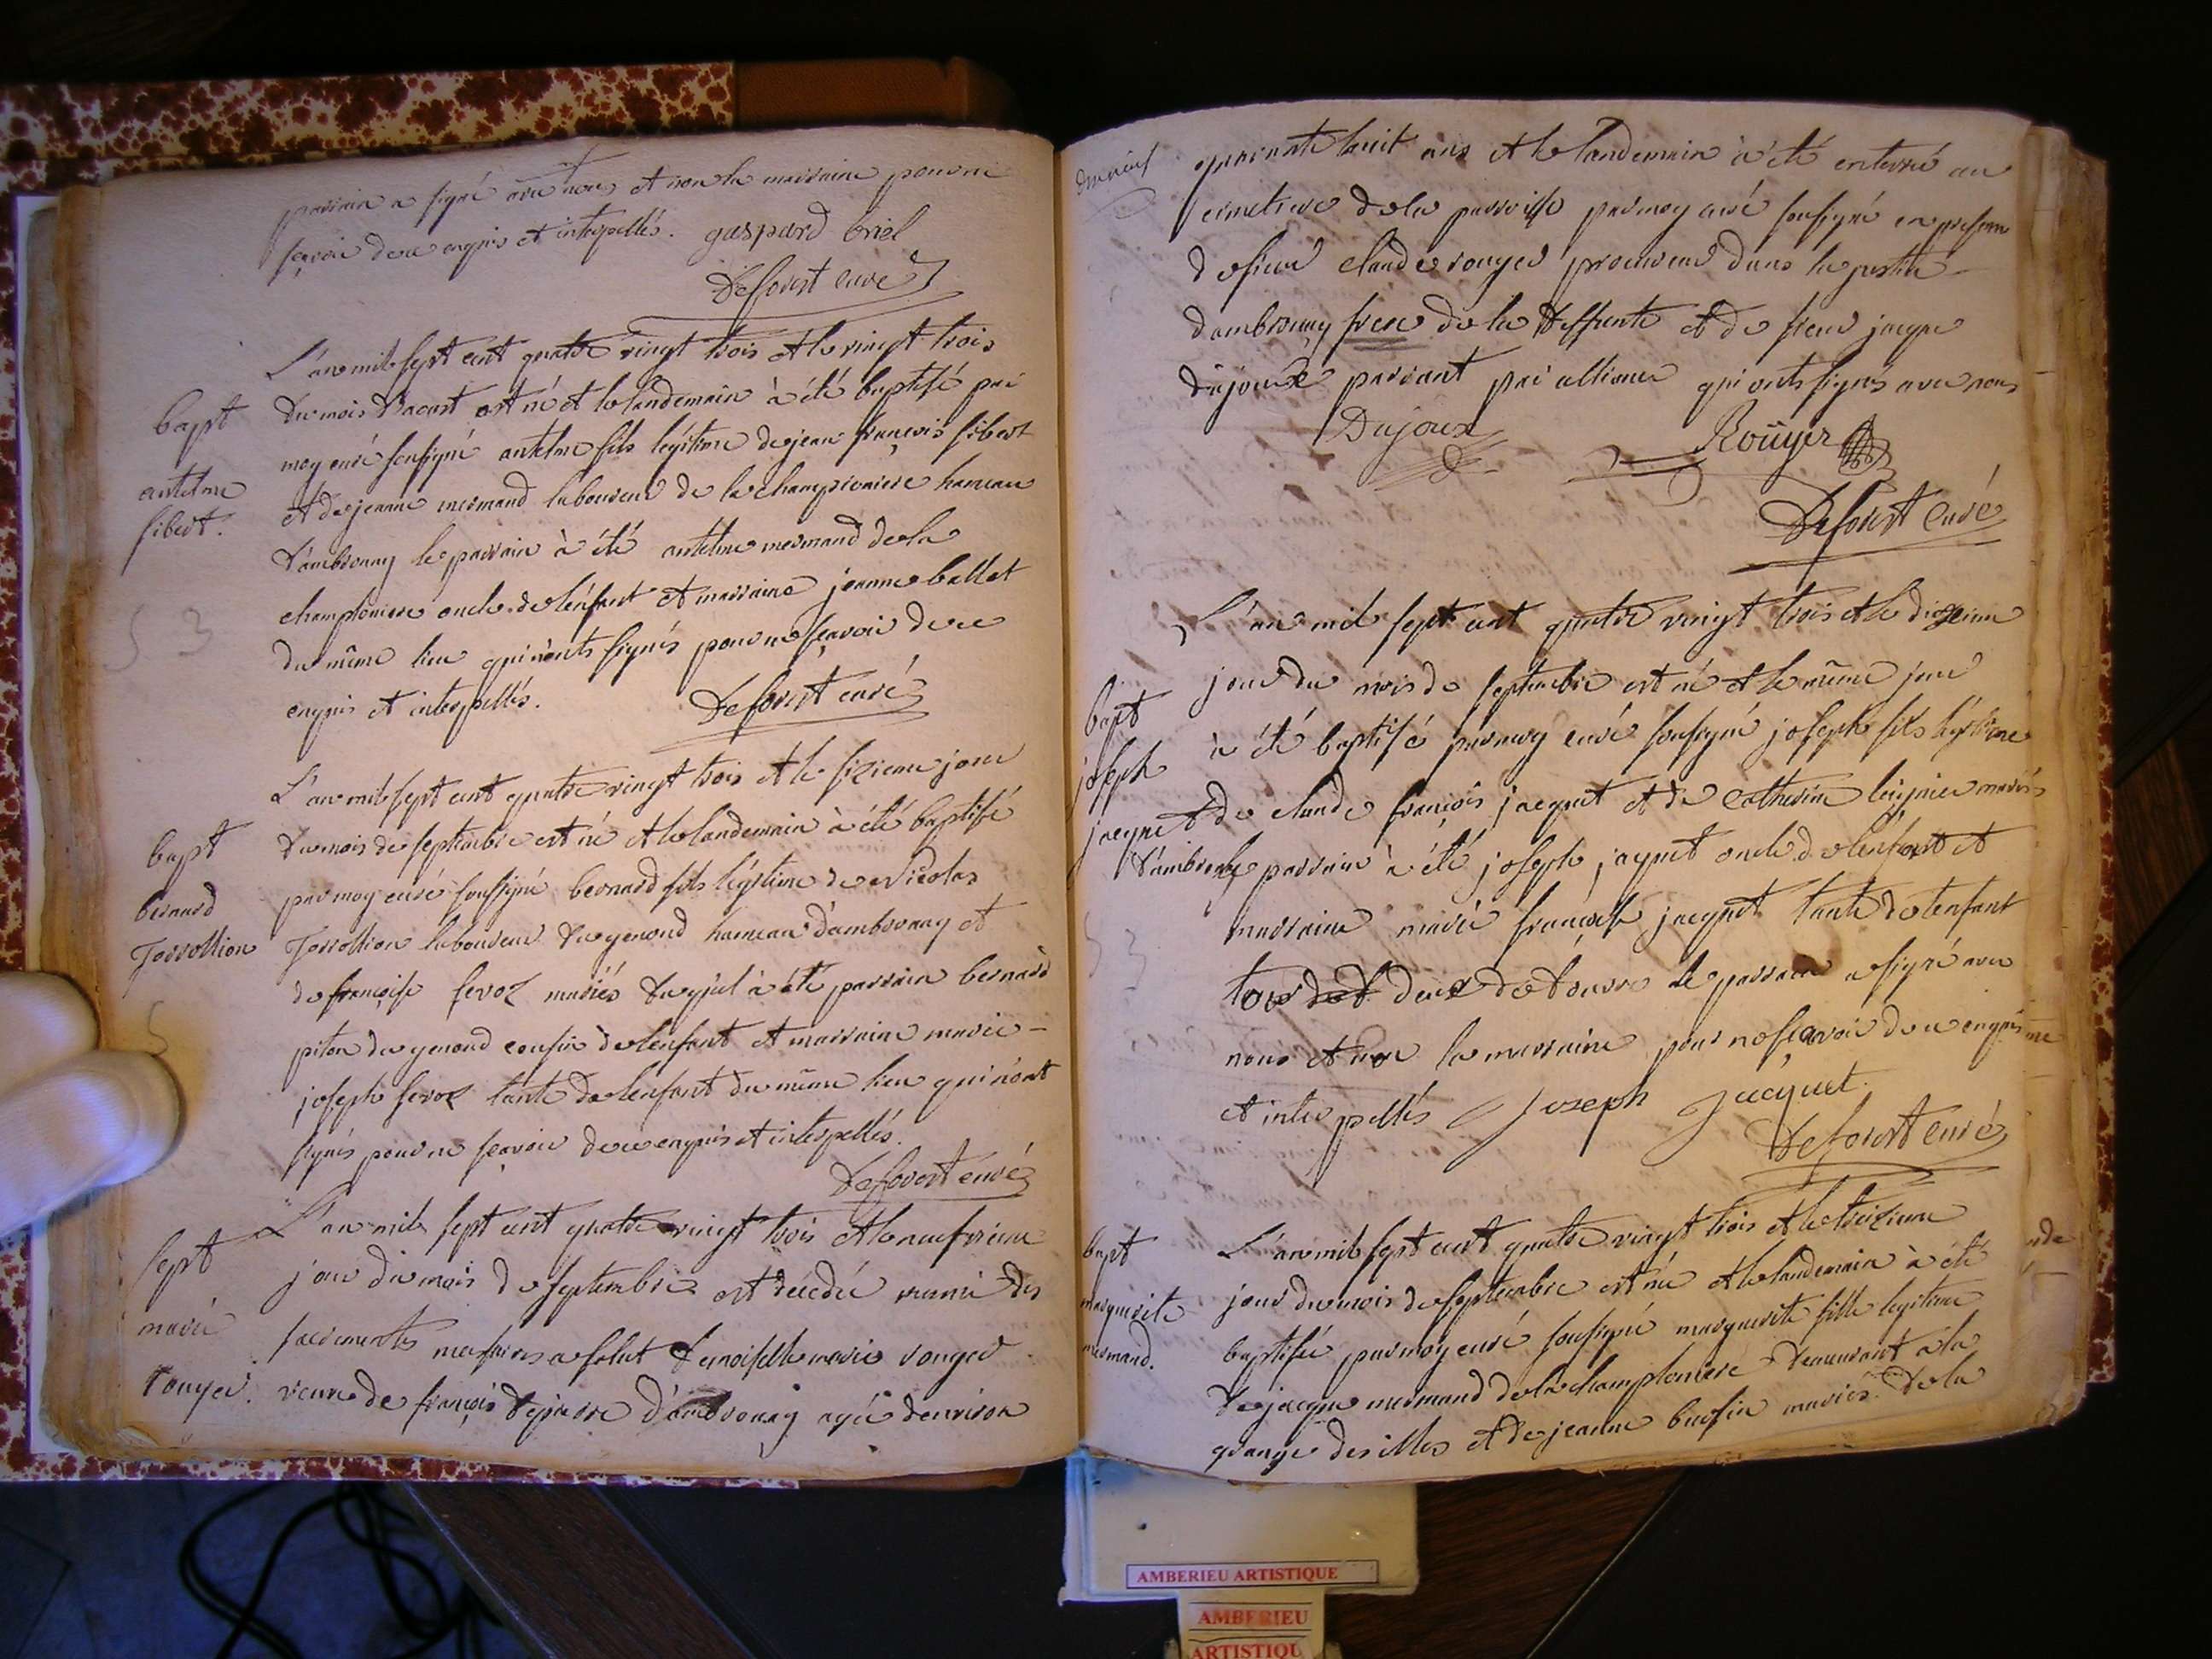 parrain a signé avec nous et non la marraine pour ne
sçavoir de ce enquis et interpellés. gaspard briel
Deforest curé
L'an mil sept cent quatre vingt trois et le vingt trois
du mois d'aoust est né et le landemain à été baptisé par
moy curé soussigné antelme fils légitime de jean françois sibert
et de jeanne mermand laboureur de la champloniere hameau
d'ambronay le parrain à été antelme mermand de la
champloniere oncle de l'enfant et marraine jeanne ballet
du même lieu qui n'ont signés pour ne sçavoir de ce
enquis et interpellés. Deforest curé
bapt
antelme
sibert.
L'an mil sept cent quatre vingt trois et le sizieme jour
du mois de septembre est né et le landemain à été baptisé
par moy curé soussigné bernard fils légitime de Nicolas
Jorrollion laboureur du genoud hameau d'ambronay et
de françoise fevoz mariés duquel à été parrain bernard
piton du genoud cousin de l'enfant et marraine marie
joseph fevoz tante de l'enfant du même lieu qui n'ont
signés pour ne sçavoir de ce enquis et interpellés.
Deforest curé
bapt
bernard
Jorrollion
L'an mil sept cent quatre vingt trois et le neufvieme
jour du mois de septembre est décédée munie des
sacrements demoiselle marie rouyer
veuve de françois d'ambronay agée denviron
sept
marie
rouyer.
quarante huit ans et le landemain à été enterré au
cimetiere de la parroisse par moy curé soussigné en presence
de sieur claude rouyer procureur dans la justice
d'ambronay frere de la deffunte et de sieur jacque
dujoux parent par alliance qui onts signés avec nous
Dujoux Roüyer
Deforest curé
L'an mil sept cent quatre vingt trois et le dizieme
jour du mois de septembre est né et le même jour
à été baptisé par moy curé soussigné joseph fils légitime
de claude françois jacquet et de Catherine mariés
parrain à été joseph jacquet oncle de l'enfant et
marraine marie françoise jacquet tante de l'enfant
tous deux le parrain a signé avec
nous et non la marraine pour ne sçavoir de ce enquis
et interpellés Joseph Jacquet.
Deforest curé
bapt
joseph
jacquet
L'an mil sept cent quatre vingt trois et le treizieme
jour du mois de septembre est née et le landemain à été
baptisée par moy curé soussigné marguerite fille legitime
de jacque mermand de la champloniere demeurant à la
grange des illes et de jeanne bursin mariés. de la
bapt
marguerite
mermand.
AMBERIEU ARTISTIQUE
AMBERIEU
ARTISTIQU